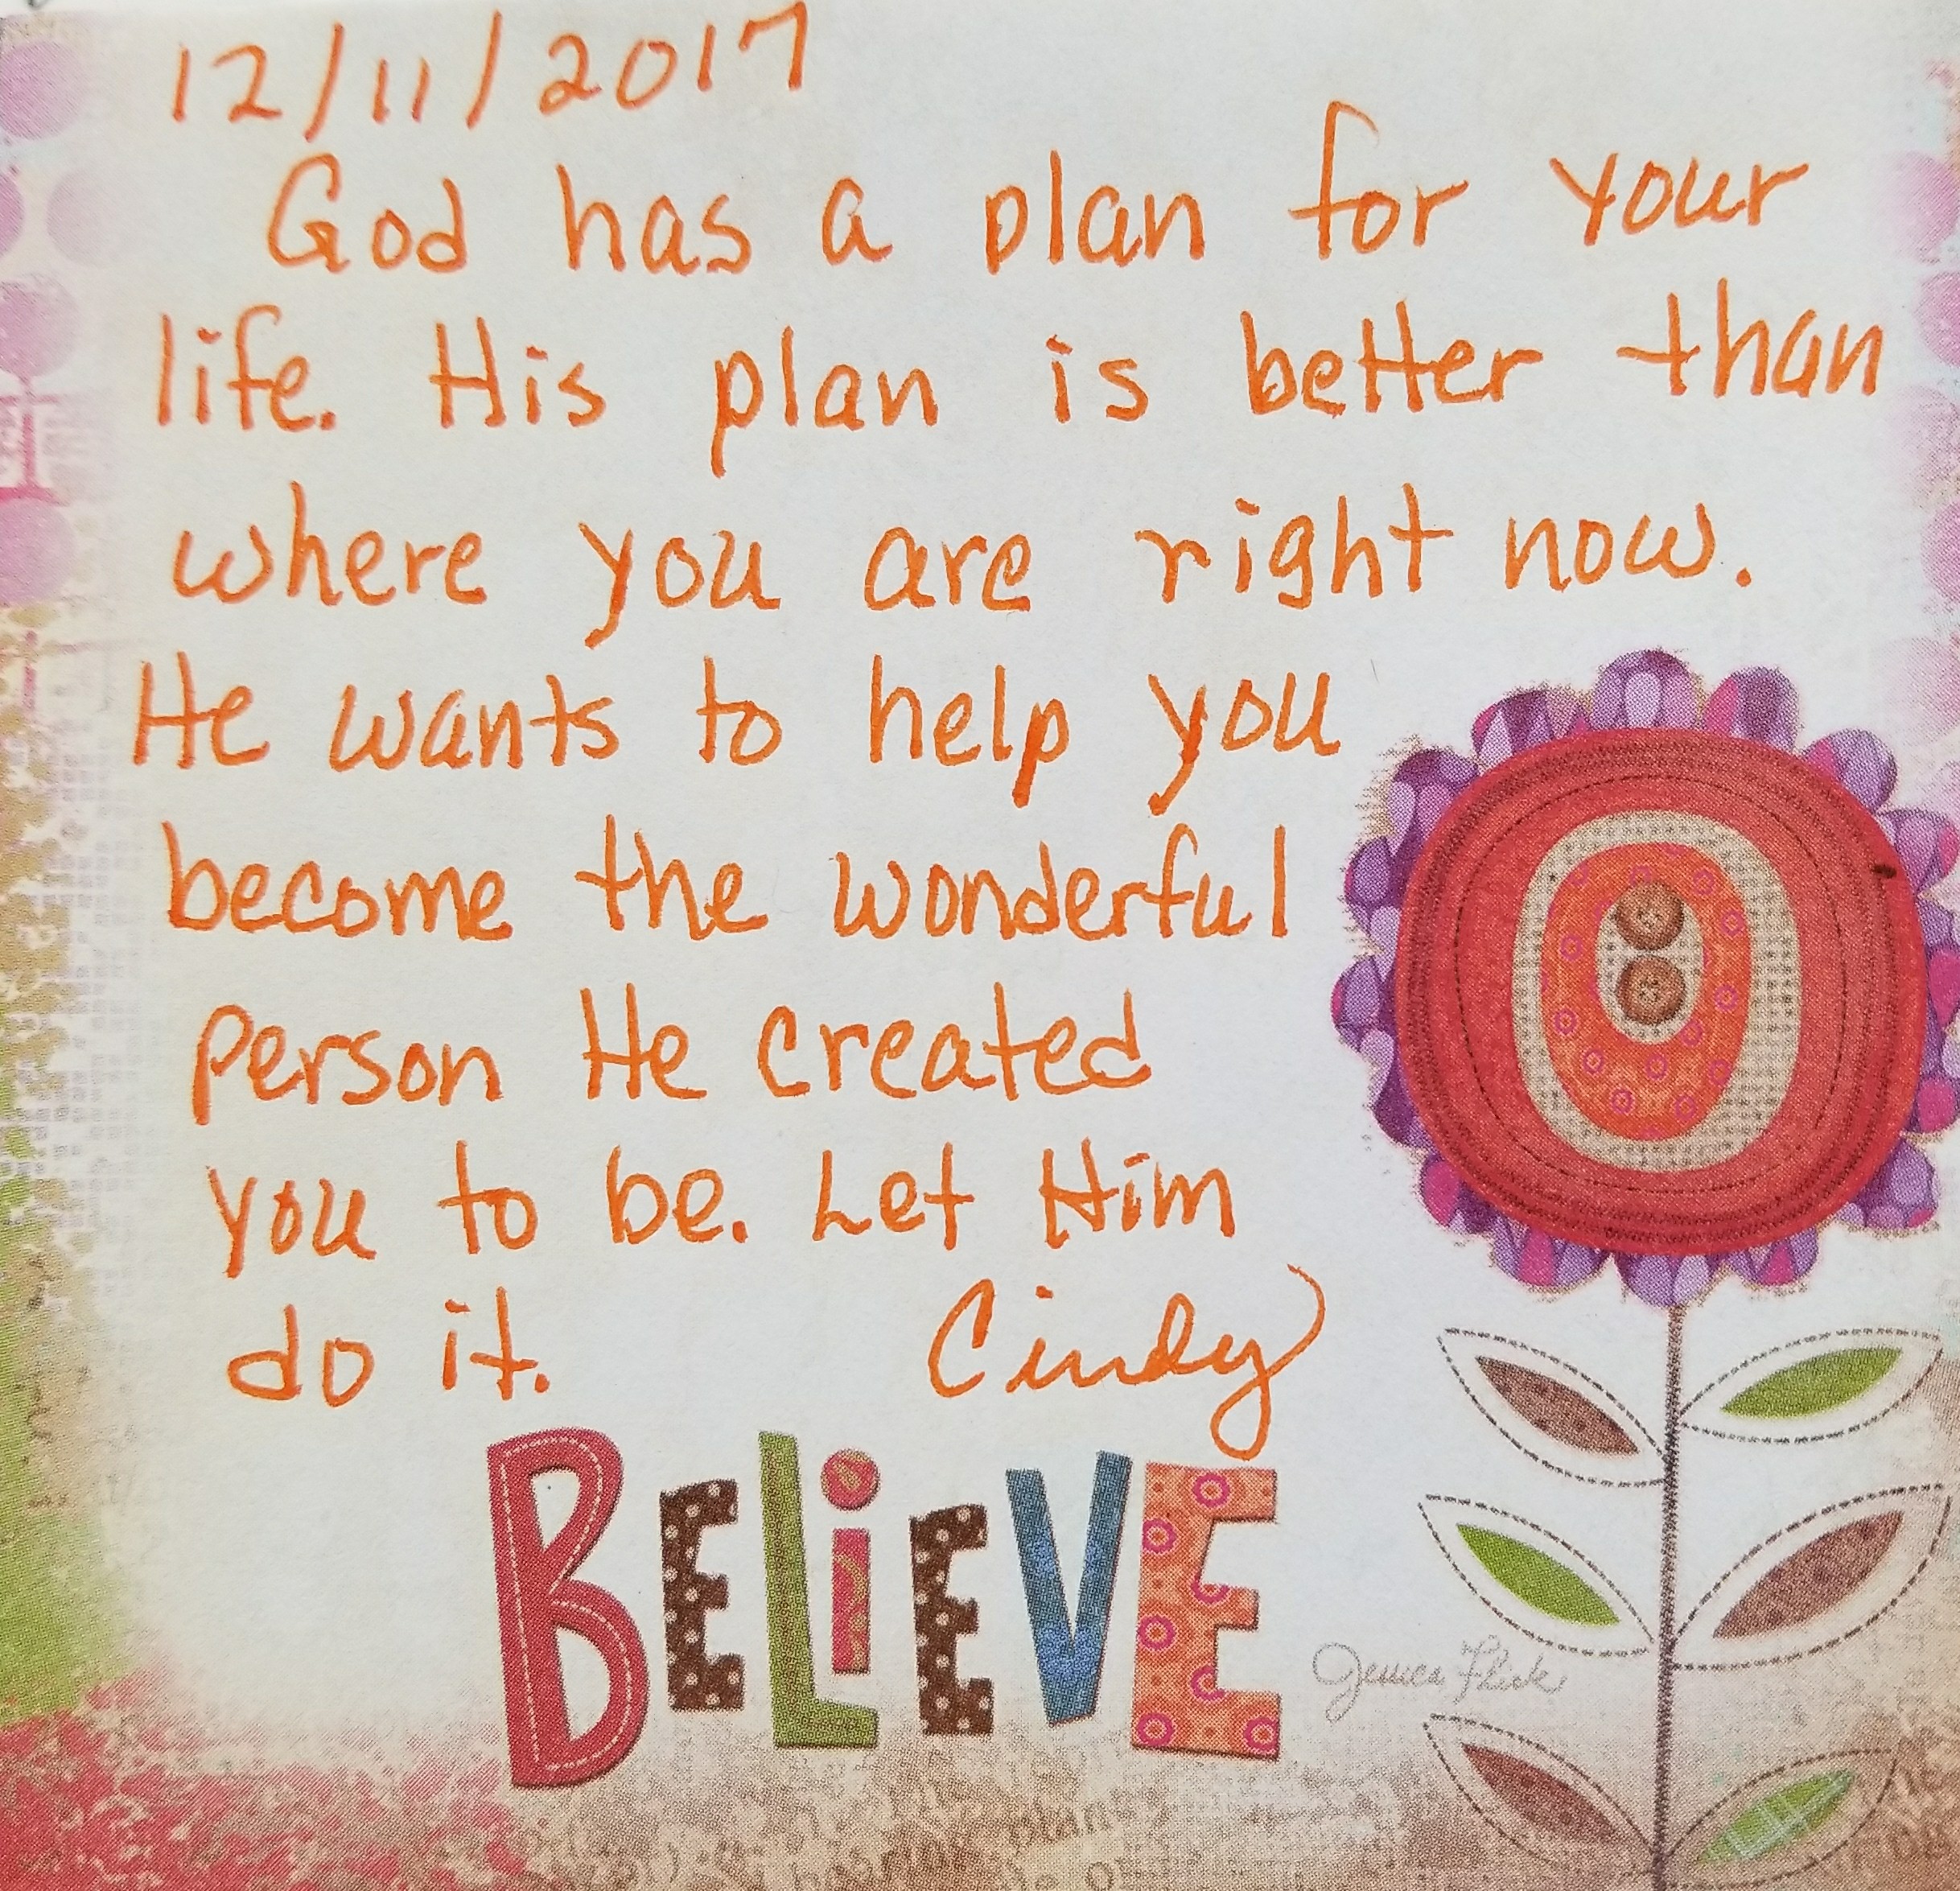 12/11/2017
God has a plan for your
life. His plan is better than
where you are right now.
He wants to help you
become the wonderful
person He created
you to be. Let Him
do it. Cindy
BELiEVE